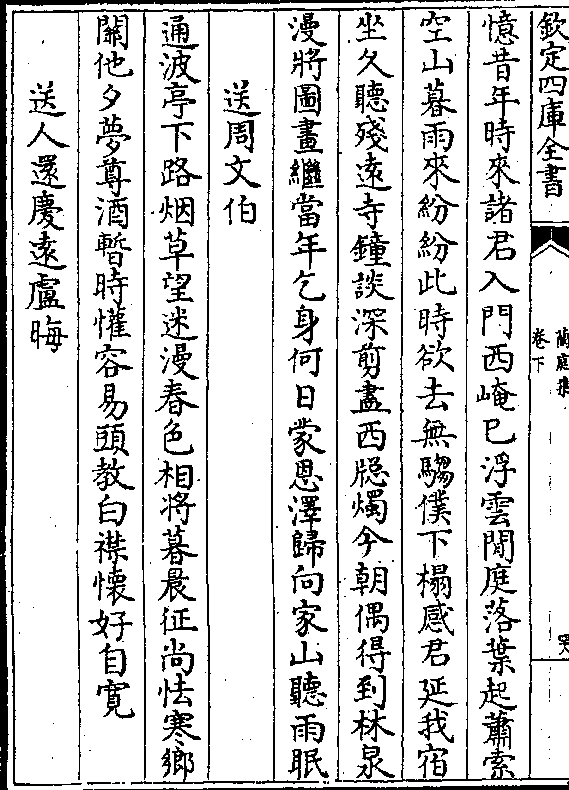 欽定四庫全書
蘭庭集
卷下
憶昔年時來諸君入門西崦已浮雲閒庭落葉起蕭索
空山暮雨來紛紛此時欲去無騶僕下榻感君延我宿
坐久聽殘遠寺鐘談深剪盡西牕燭今朝偶得到林泉
漫將圖畫繼當年乞身何日蒙恩澤歸向家山聽雨眠
送周文伯
通波亭下路烟草望迷漫春色相將暮晨征尚怯寒鄉
關他夕夢尊酒暫時懽容易頭教白襟懷好自寛
送人還慶遠盧晦